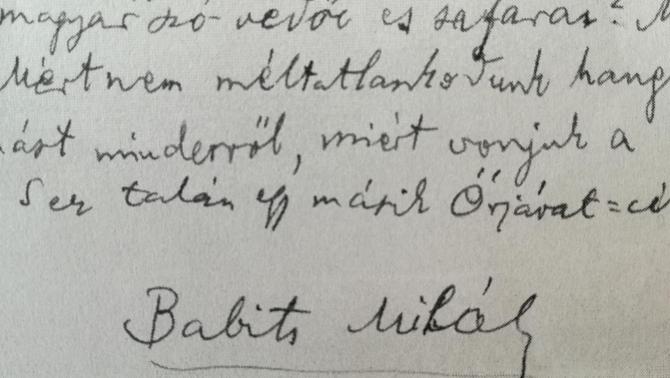 magyar szó védői és
Miért nem méltatlankodunk hang
mást minderről, miért vonjuk a
Ser talán egy másik Őrjárat=cí
Babits Mihály